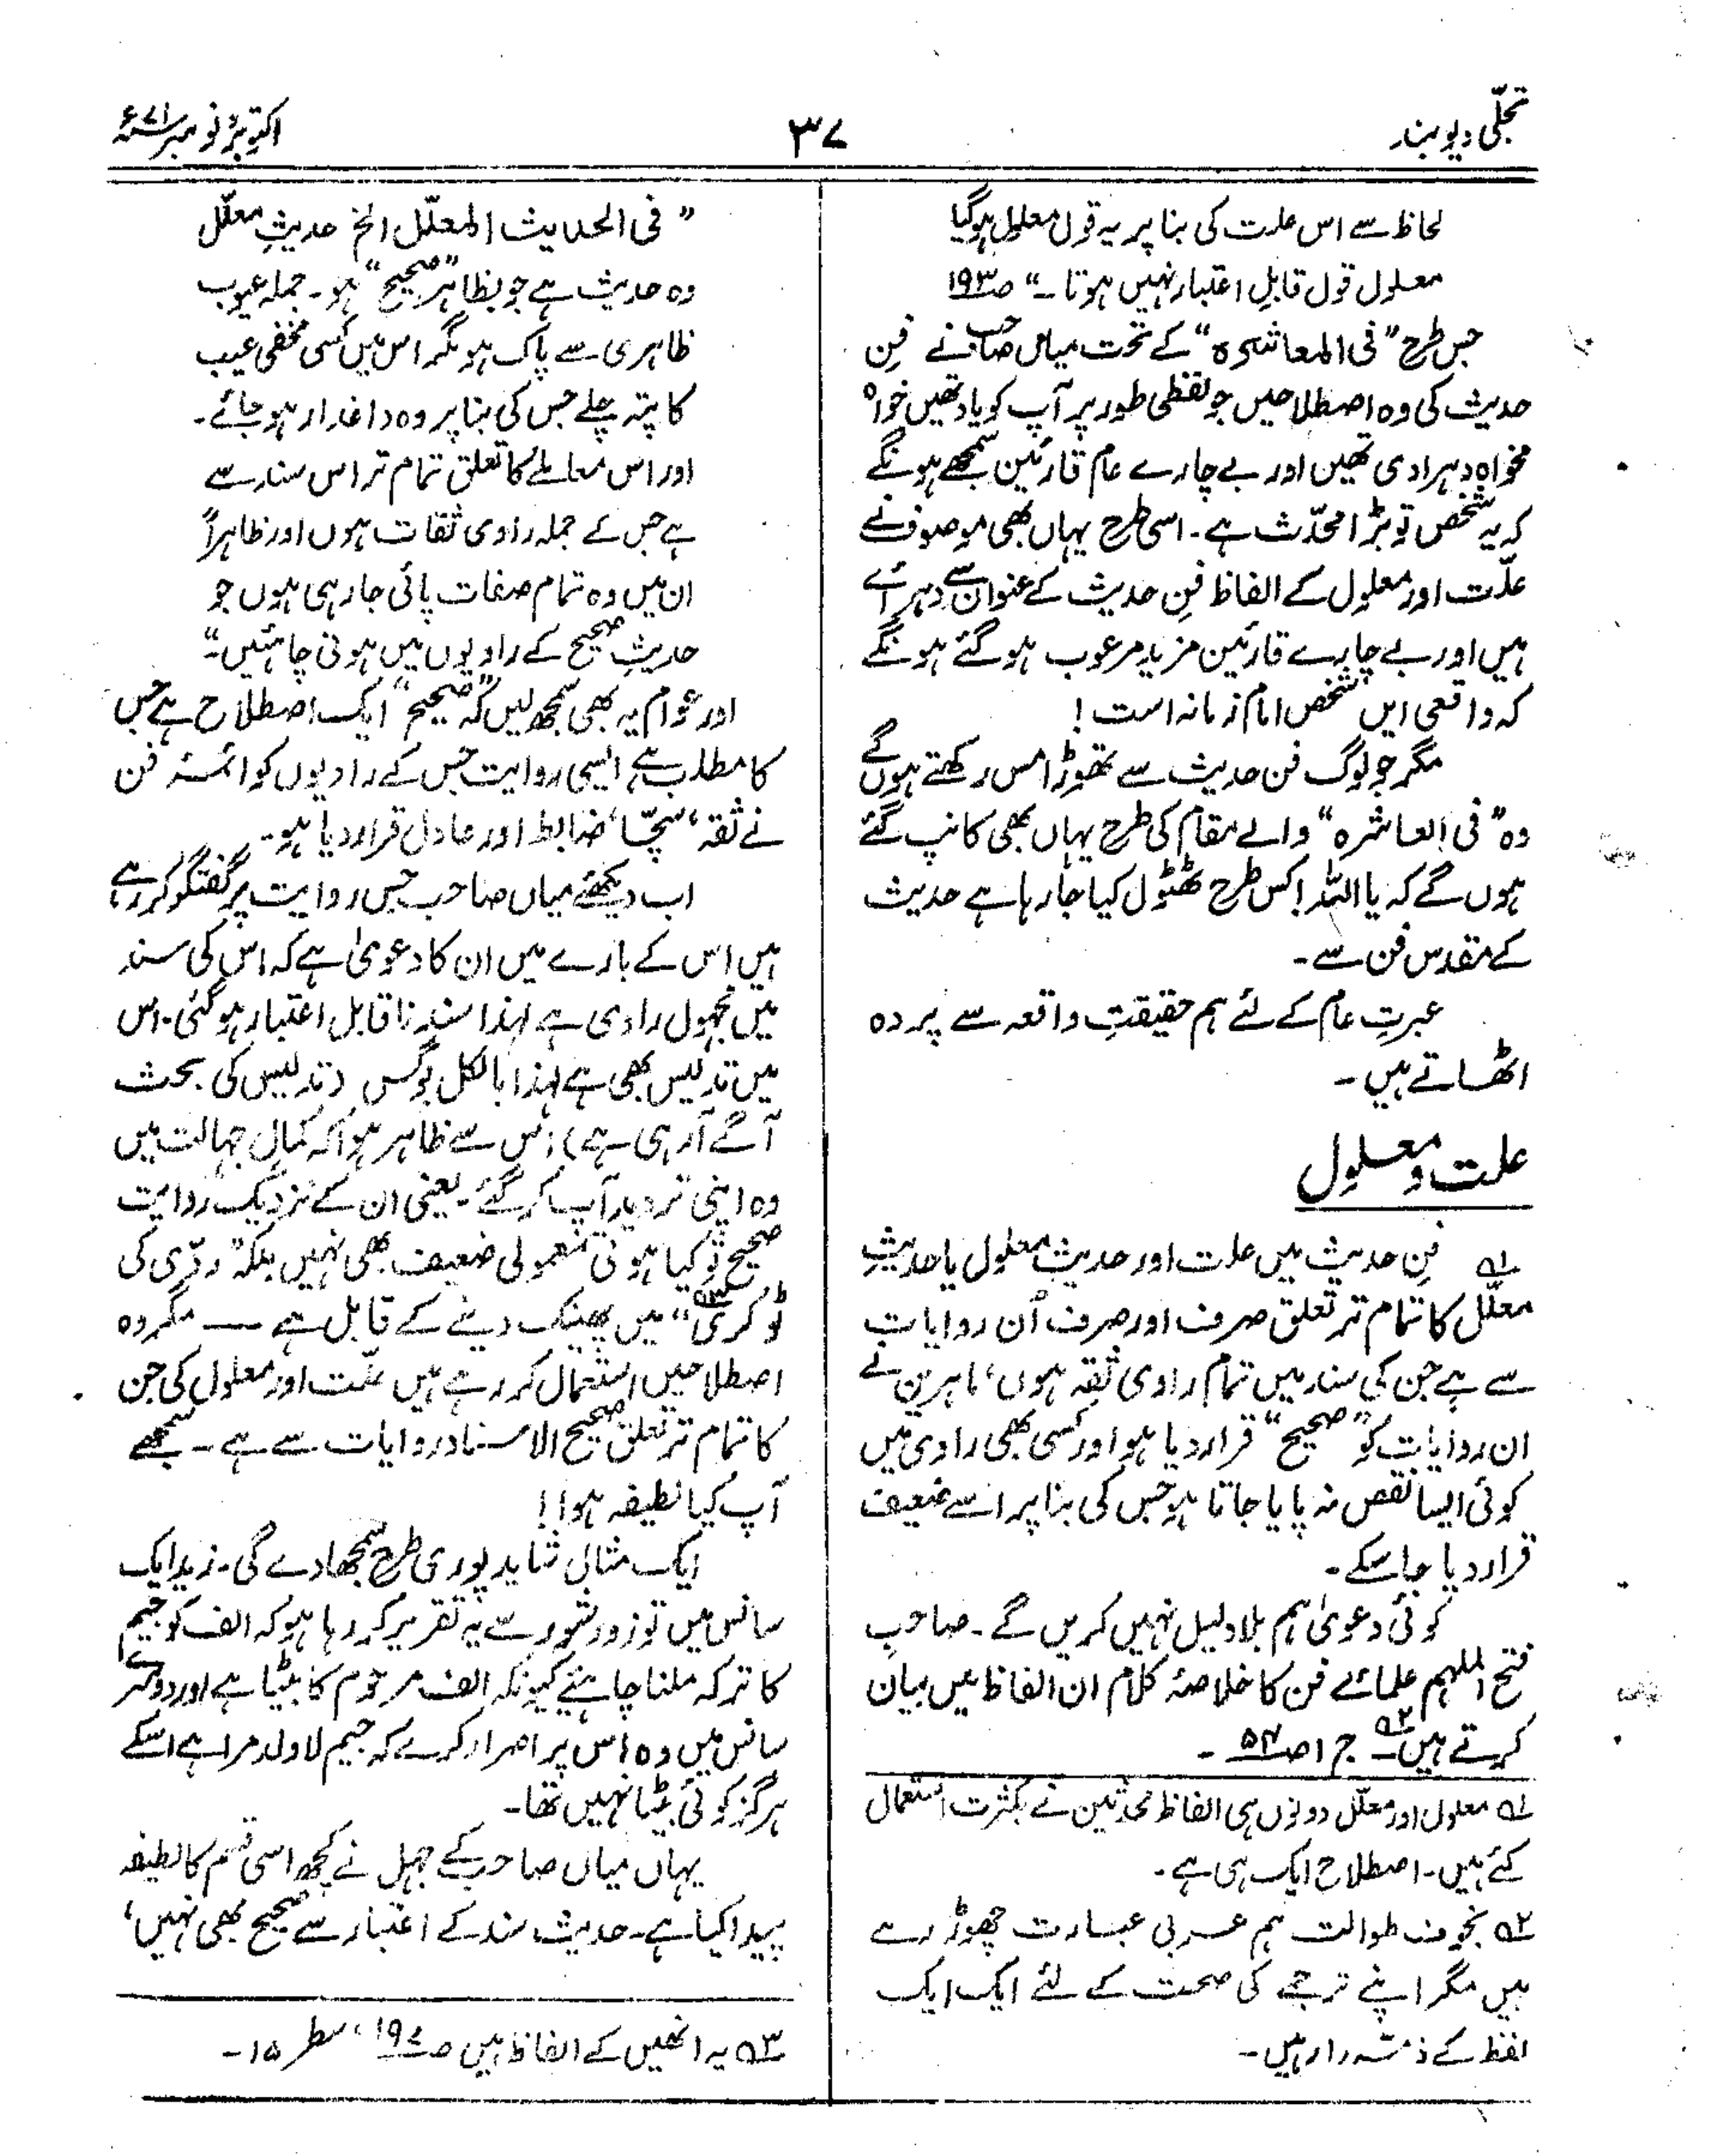 تجلّی دیوبند
۳۷
اکتوبر، نومبر ۷۱ء
لحاظ سے اس علت کی بنا پر یہ قول معلول ہوگیا
معلول قول قابلِ اعتبار نہیں ہوتا ۔“ ص۱۹۳
جس طرح ”فی المعاشرہ“ کے تحت میاں صاحب نے فن
حدیث کی وہ اصطلاحیں جو لفظی طور پر آپ کو یاد تھیں خواہ
مخواہ دہرا دی تھیں اور بے چارے عام قارئین سمجھے ہونگے
کہ یہ شخص تو بڑا محدّث ہے۔ اسی طرح یہاں بھی موصوف نے
علّت اور معلول کے الفاظ فنِ حدیث کے عنوان سے دہرائے
ہیں اور بے چارے قارئین مزید مرعوب ہوگئے ہونگے
کہ واقعی ایں شخص امام زمانہ است !
مگر جو لوگ فن حدیث سے تھوڑا مس رکھتے ہوں گے
وہ ”فی العاشرہ“ والے مقام کی طرح یہاں بھی کانپ گئے
ہوں گے کہ یا اللہ! کس طرح ٹھٹول کیا جارہا ہے حدیث
کے مقدس فن سے ۔
عبرتِ عام کے لئے ہم حقیقتِ واقعہ سے پردہ
اٹھاتے ہیں ۔
علت و معلول
۱؎ فنِ حدیث میں علت اور حدیثِ معلول یا حدیثِ
معلّل کا تمام تر تعلق صرف اور صرف اُن روایات
سے ہے جن کی سند میں تمام راوی ثقہ ہوں، ماہرین نے
ان روایات کو ”صحیح“ قرار دیا ہو اور کسی بھی راوی میں
کوئی ایسا نقص نہ پایا جاتا ہو جس کی بنا پر اسے ضعیف
قرار دیا جاسکے ۔
کوئی دعویٰ ہم بلا دلیل نہیں کریں گے ۔ صاحبِ
فتح الملہم علمائے فن کا خلاصۂ کلام ان الفاظ میں بیان
کرتے ہیں ۲؎ ج ۱ ص۵۴ ۔
۱؎ معلول اور معلّل دونوں ہی الفاظ محدثین نے بکثرت استعمال
کئے ہیں۔ اصطلاح ایک ہی ہے ۔
۲؎ بخوف طوالت ہم عربی عبارت چھوڑ رہے
ہیں مگر اپنے ترجمے کی صحت کے لئے ایک ایک
لفظ کے ذمّہ دار ہیں ۔
”فی الحدیث المعلّل الخ حدیثِ معلّل
وہ حدیث ہے جو بظاہر ”صحیح“ ہو۔ جملہ عیوب
ظاہری سے پاک ہو مگر اس میں کسی مخفی عیب
کا پتہ چلے جس کی بنا پر وہ داغدار ہوجائے۔
اور اس معاملے کا تعلق تمام تر اس سند سے
ہے جس کے جملہ راوی ثقات ہوں اور ظاہراً
ان میں وہ تمام صفات پائی جارہی ہوں جو
حدیثِ صحیح کے راویوں میں ہونی چاہئیں۔“
اور عوام یہ بھی سمجھ لیں کہ ”صحیح“ ایک اصطلاح ہے جس
کا مطلب ہے ایسی روایت جس کے راویوں کو ائمۂ فن
نے ثقہ، سچّا، ضابط اور عادل قرار دیا ہو۔
اب دیکھئے میاں صاحب جس روایت پر گفتگو کررہے
ہیں اس کے بارے میں ان کا دعویٰ ہے کہ اس کی سند
میں مجہول راوی ہے لہٰذا سند ناقابل اعتبار ہوگئی۔ اس
میں تدلیس بھی ہے لہٰذا بالکل بوگس (تدلیس کی بحث
آگے آرہی ہے) اس سے ظاہر ہوا کہ کمالِ جہالت میں
وہ اپنی تردید آپ کرگئے۔ یعنی ان کے نزدیک روایت
صحیح تو کیا ہوتی معمولی ضعیف بھی نہیں بلکہ ”ردّی کی
ٹوکری۳؎“ میں پھینک دینے کے قابل ہے —— مگر وہ
اصطلاحیں استعمال کررہے ہیں علّت اور معلول کی جن
کا تمام تر تعلق صحیح الاسناد روایات سے ہے ۔ سمجھے
آپ کیا لطیفہ ہوا !!
ایک مثال شاید پوری طرح سمجھا دے گی۔ زید ایک
سانس میں تو زور شور سے یہ تقریر کررہا ہو کہ الف کو جیم
کا ترکہ ملنا چاہئے کیونکہ الف مرحوم کا بیٹا ہے اور دوسرے
سانس میں وہ اس پر اصرار کرے کہ جیم لاولد مرا ہے اسکے
ہرگز کوئی بیٹا نہیں تھا۔
یہاں میاں صاحب کے جہل نے کچھ اسی قسم کا لطیفہ
پیدا کیا ہے۔ حدیث سند کے اعتبار سے صحیح بھی نہیں،
۳؎ یہ انھیں کے الفاظ ہیں ص۱۹۷، سطر ۱۵ ۔